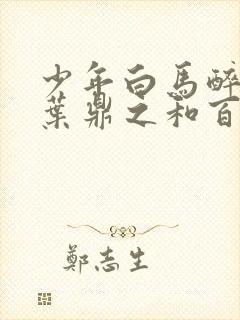 少年白馬醉
葉鼎之和百
鄭志生